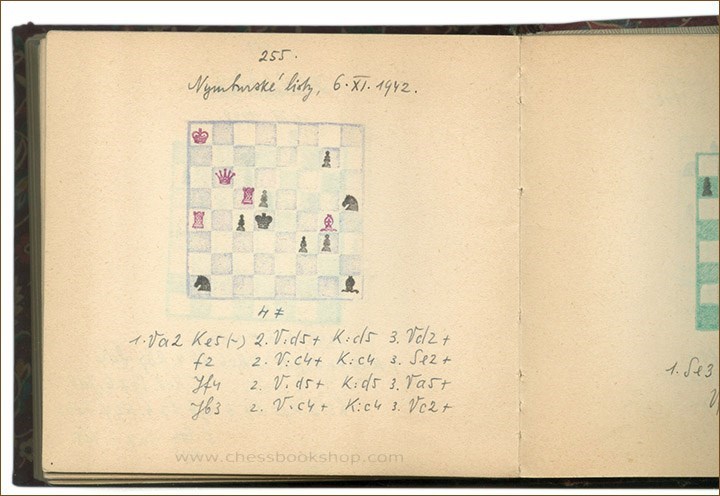 255.
Nymburské listy, 6.XI.1942.
4 ≠
1. Va2 Ke5(~) 2. V:d5+ K:d5 3. Vd2+
f2 2. V:c4+ K:c4 3. Se2+
Jf4 2. V:d5+ K:d5 3. Va5+
Jb3 2. V:c4+ K:c4 3. Vc2+
1. Se3
www.chessbookshop.com